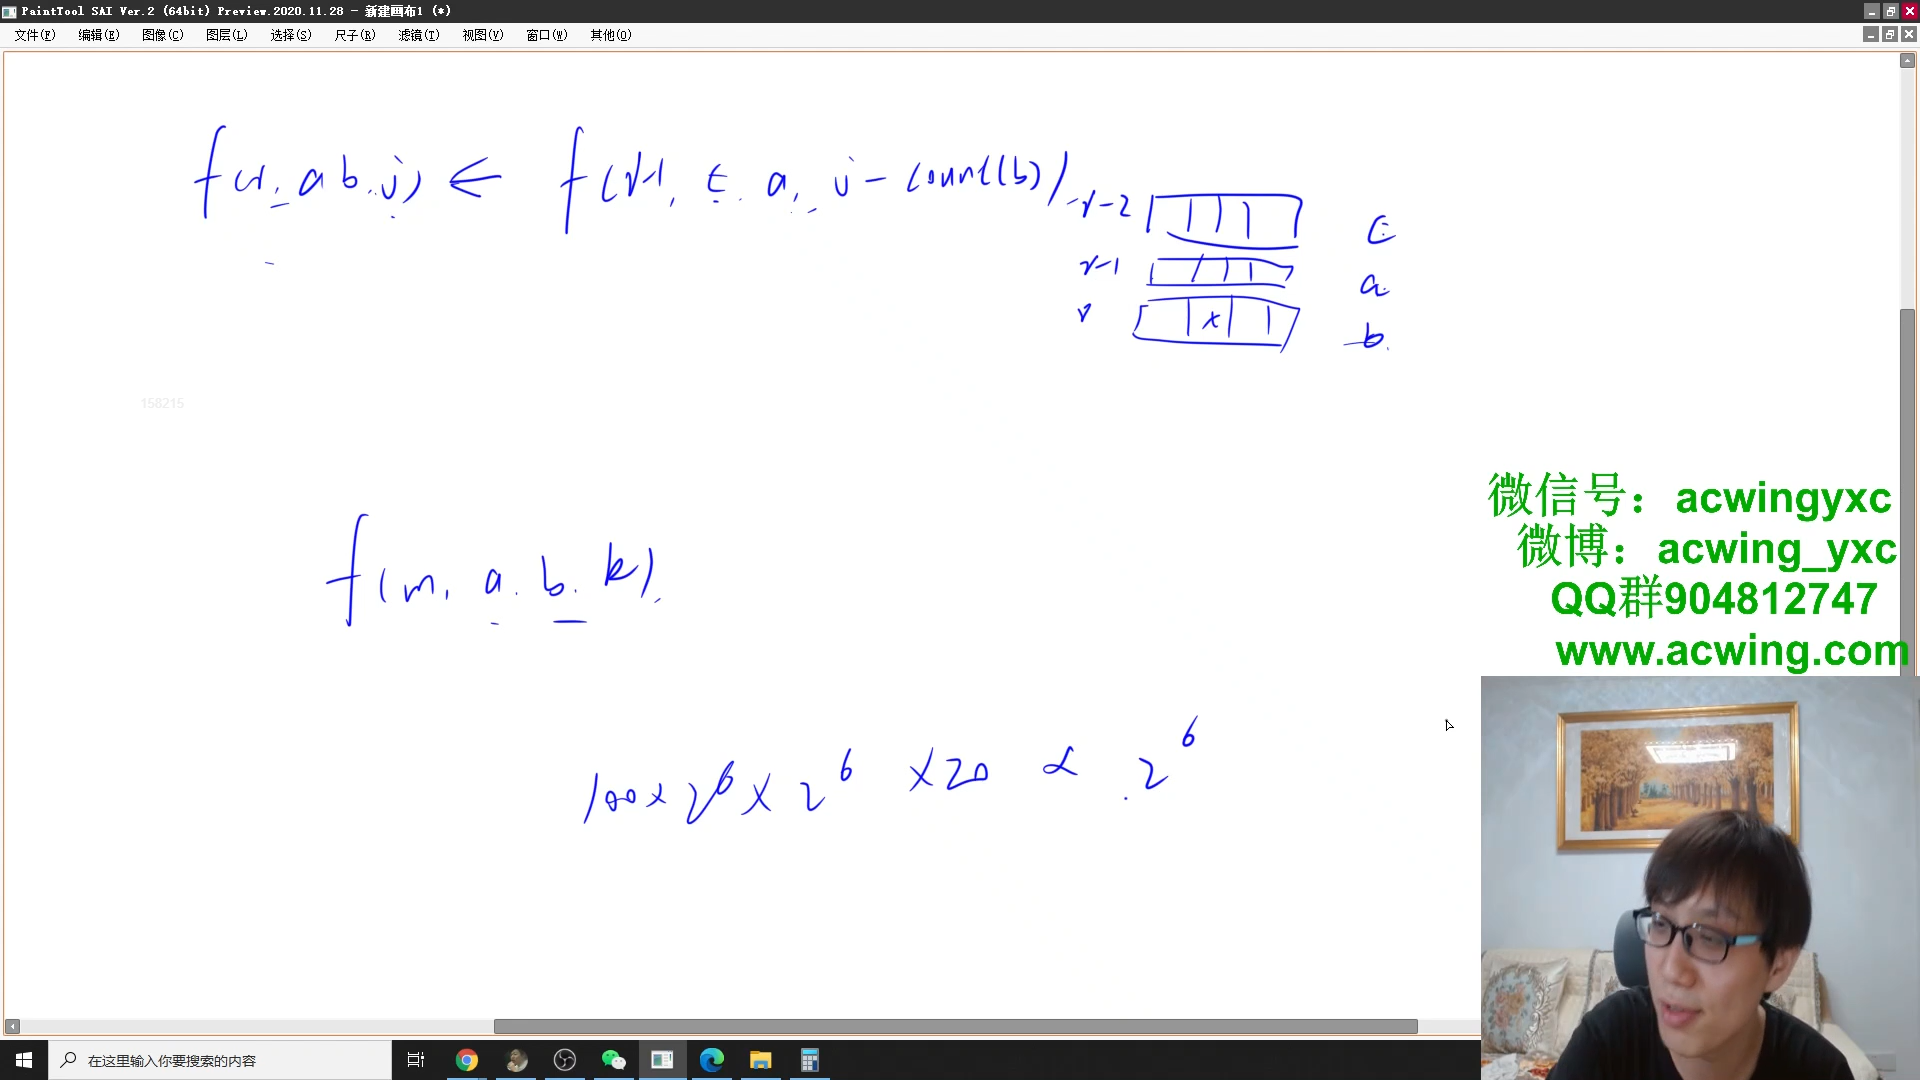 PaintTool SAI Ver.2 (64bit) Preview.2020.11.28 - 新建画布1 (*)
文件(F) 编辑(E) 图像(C) 图层(L) 选择(S) 尺子(R) 滤镜(T) 视图(V) 窗口(W) 其他(O)
f(r, a b, j) ← f(r-1, c, a, j - count(b))
r-2
c
r-1
a
r
x
b
158215
f(m, a, b, k)
100 x 2^6 x 2^6 x 20 x 2^6
微信号：acwingyxc
微博：acwing_yxc
QQ群904812747
www.acwing.com
在这里输入你要搜索的内容